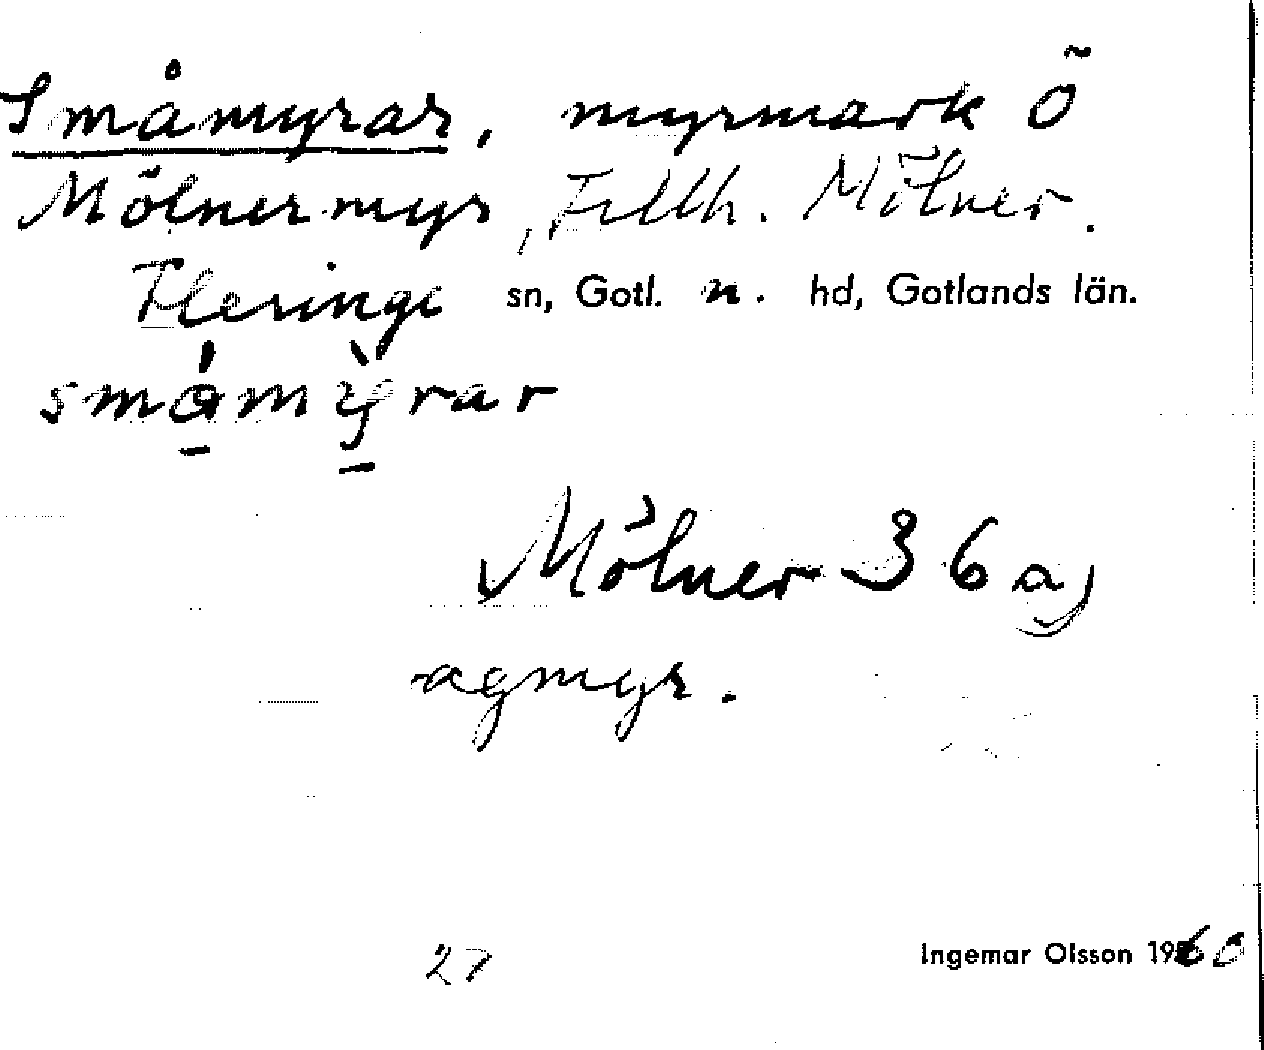 Småmyrar, myrmark Ö
Mölnermyr, Tillh. Mölner.
Fleringe sn, Gotl. n. hd, Gotlands län.
småmỳrar
Mölner 36a)
agmyr.
27 Ingemar Olsson 1960